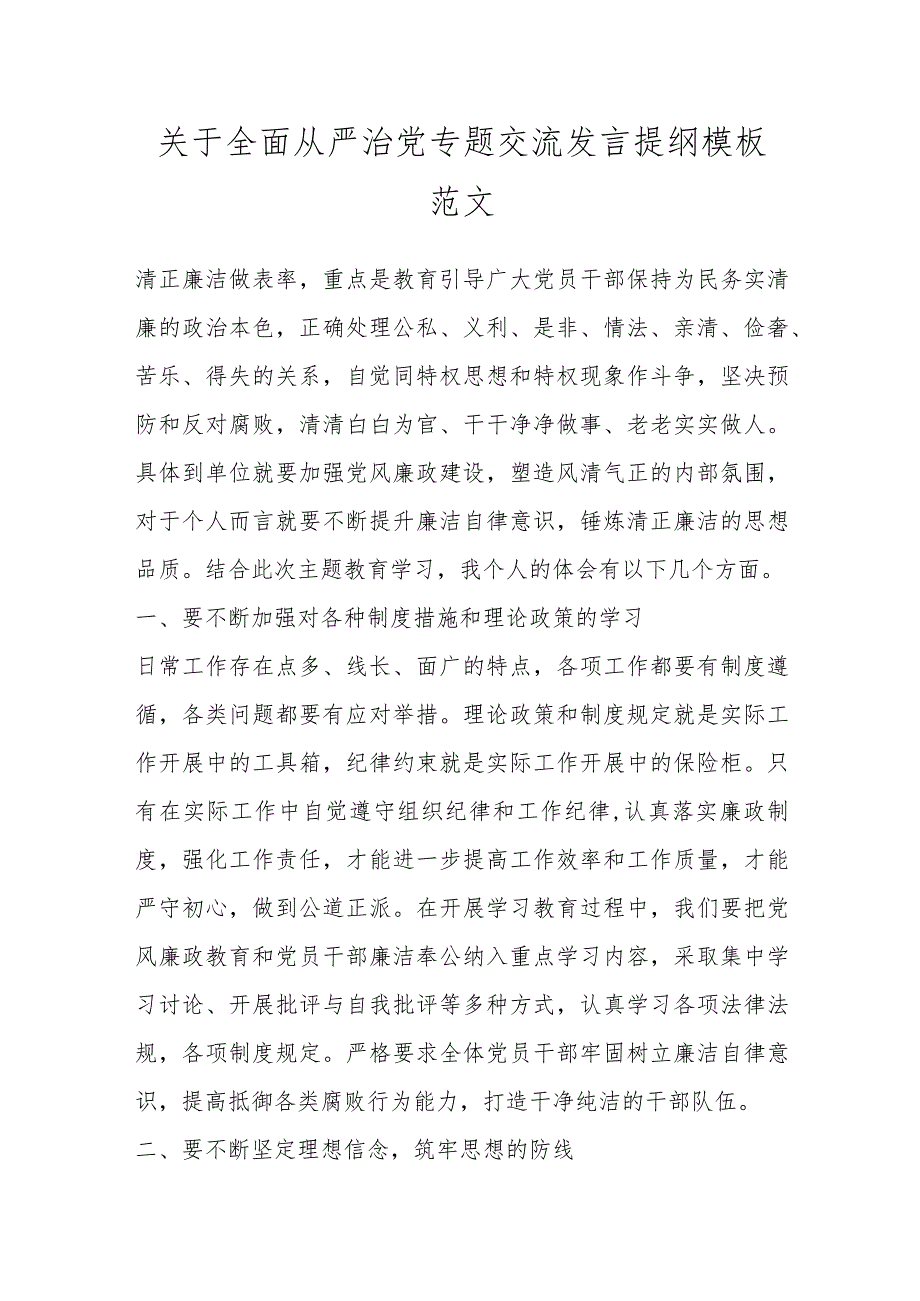 关于全面从严治党专题交流发言提纲模板
范文
清正廉洁做表率，重点是教育引导广大党员干部保持为民务实清
廉的政治本色，正确处理公私、义利、是非、情法、亲清、俭奢、
苦乐、得失的关系，自觉同特权思想和特权现象作斗争，坚决预
防和反对腐败，清清白白为官、干干净净做事、老老实实做人。
具体到单位就要加强党风廉政建设，塑造风清气正的内部氛围，
对于个人而言就要不断提升廉洁自律意识，锤炼清正廉洁的思想
品质。结合此次主题教育学习，我个人的体会有以下几个方面。
一、要不断加强对各种制度措施和理论政策的学习
日常工作存在点多、线长、面广的特点，各项工作都要有制度遵
循，各类问题都要有应对举措。理论政策和制度规定就是实际工
作开展中的工具箱，纪律约束就是实际工作开展中的保险柜。只
有在实际工作中自觉遵守组织纪律和工作纪律,认真落实廉政制
度，强化工作责任，才能进一步提高工作效率和工作质量，才能
严守初心，做到公道正派。在开展学习教育过程中，我们要把党
风廉政教育和党员干部廉洁奉公纳入重点学习内容，采取集中学
习讨论、开展批评与自我批评等多种方式，认真学习各项法律法
规，各项制度规定。严格要求全体党员干部牢固树立廉洁自律意
识，提高抵御各类腐败行为能力，打造干净纯洁的干部队伍。
二、要不断坚定理想信念，筑牢思想的防线